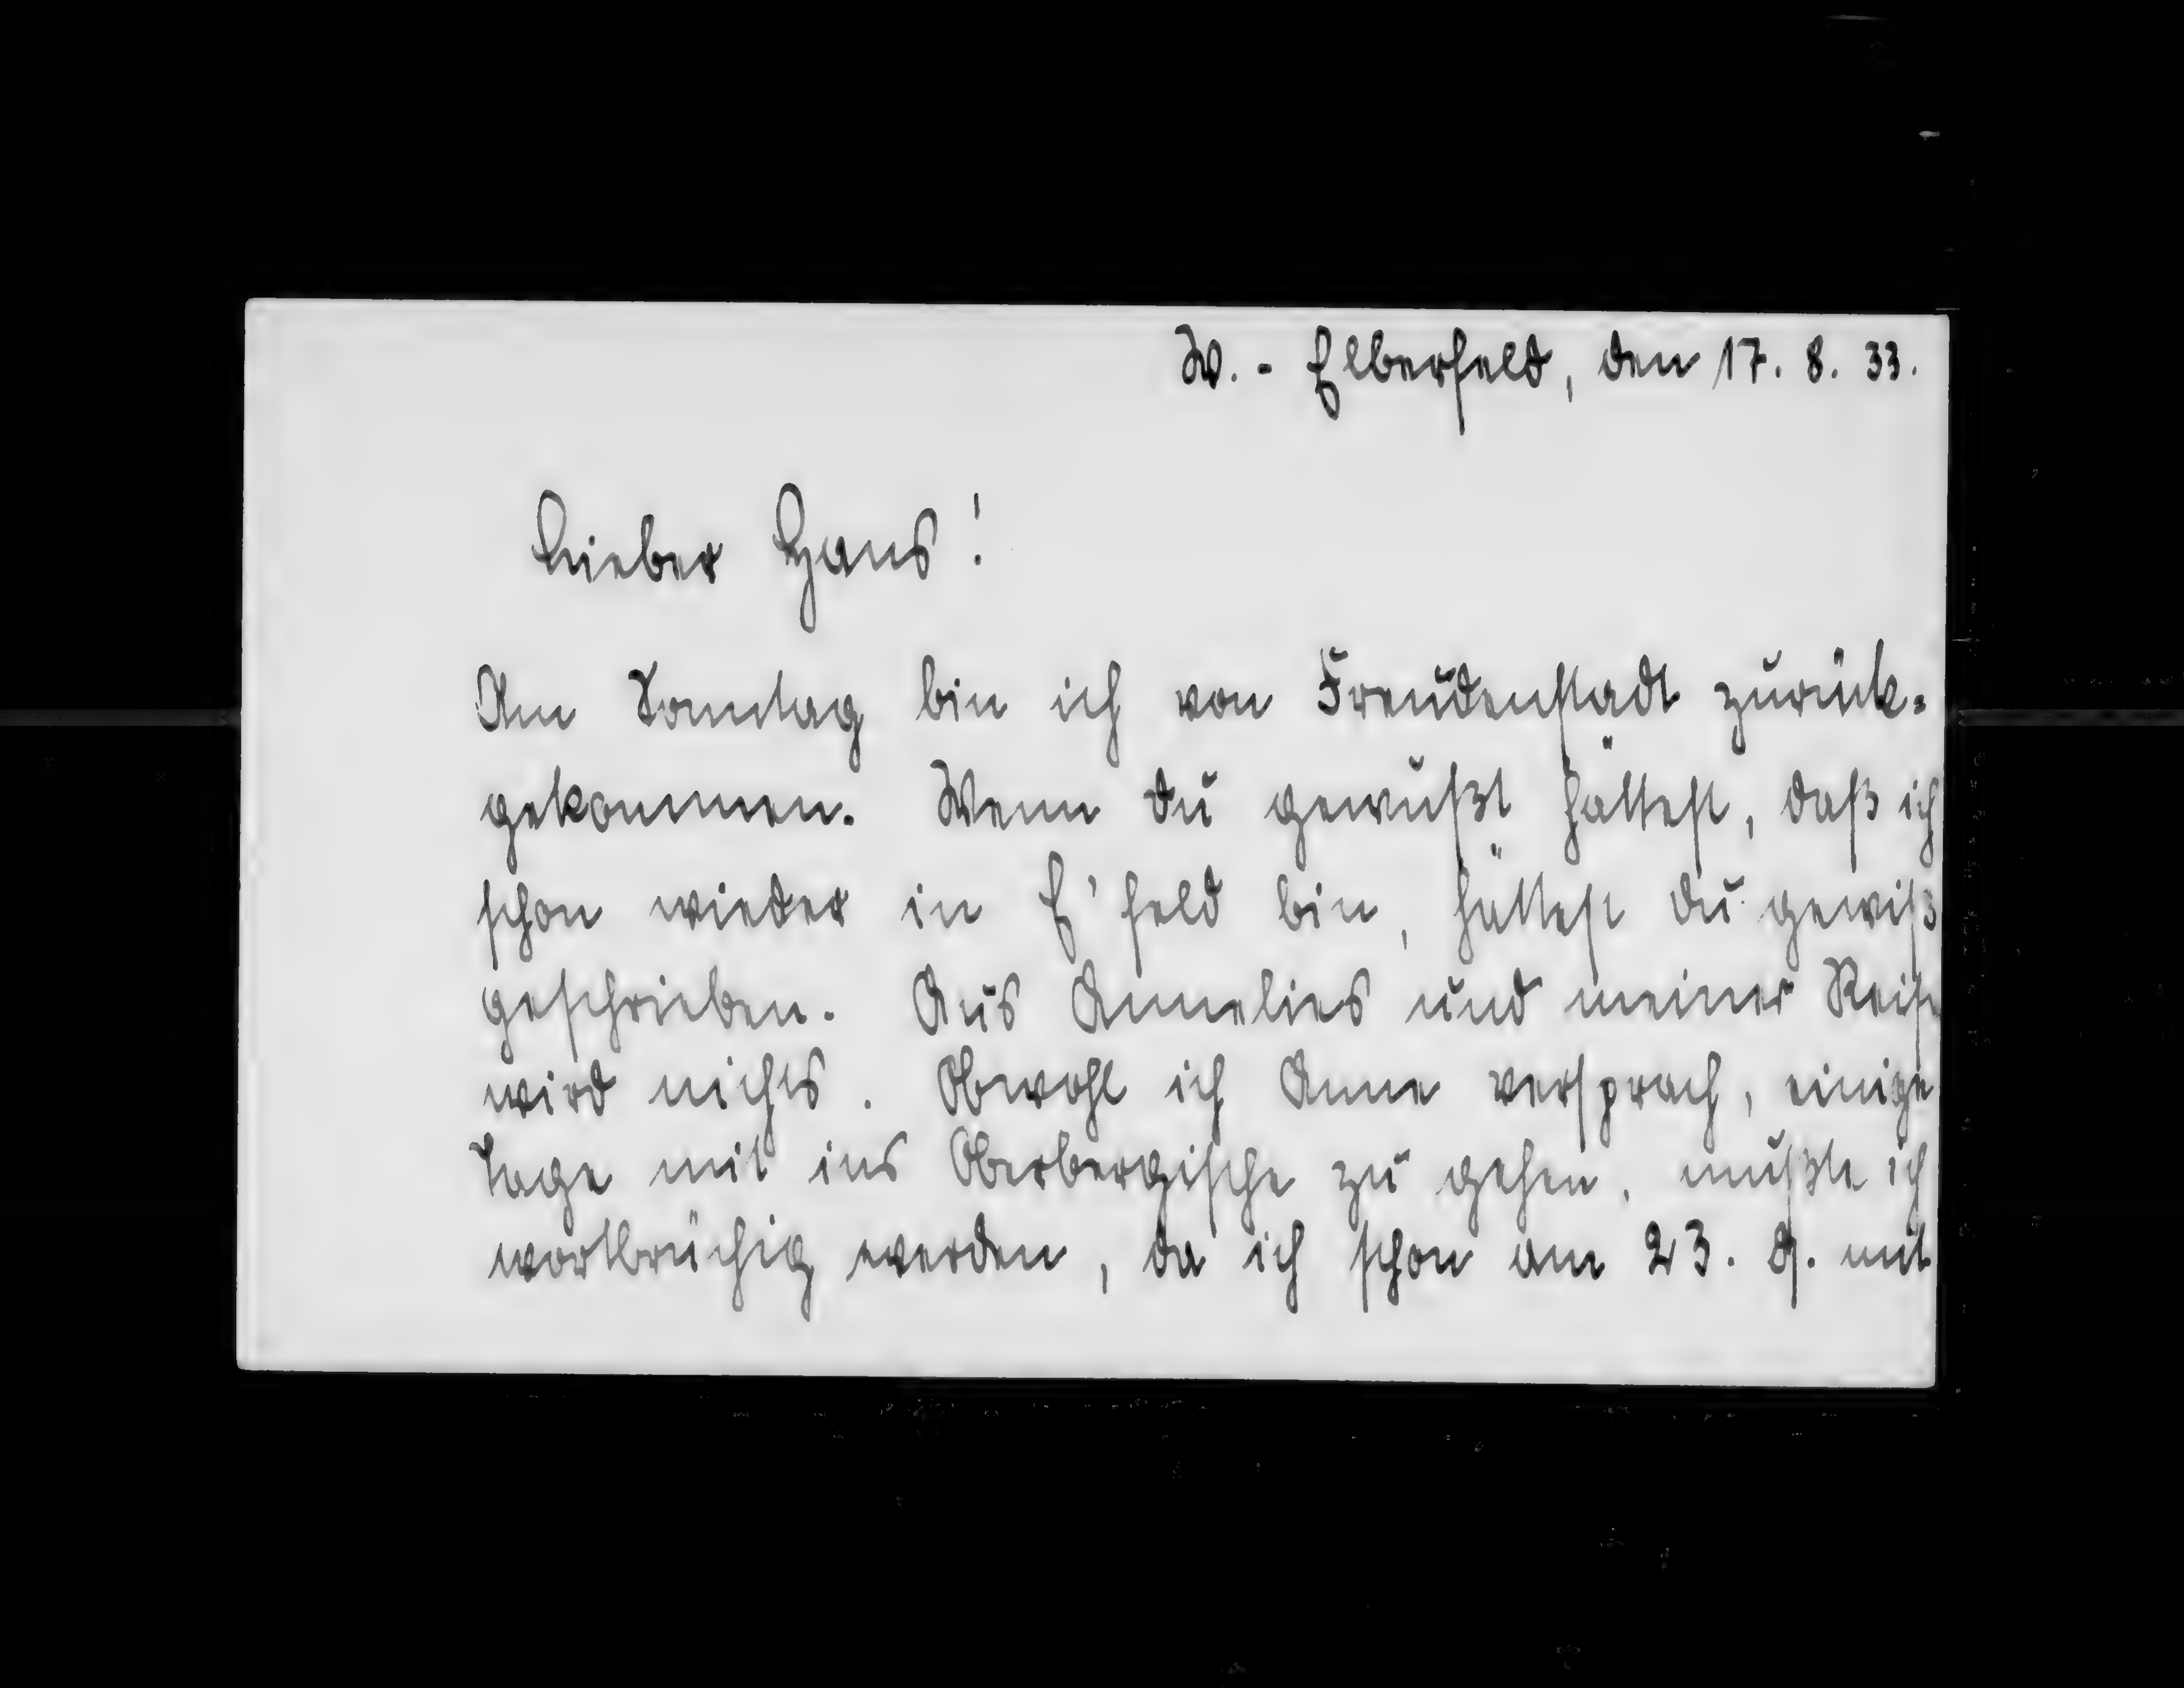 W.- Elberfeld, den 17. 8. 33.
Lieber Hans!
Am Sonntag bin ich von Freudenstadt zurück-
gekommen. Wenn du gewußt hättest, daß ich
schon wieder in E'feld bin, hättest du gewiß
geschrieben. Aus Annelies und meiner Reise
wird nichts. Obwohl ich Anne versprach, einige
Tage mit ins Oberbergische zu gehen, mußte ich
wortbrüchig werden, da ich schon am 23. 9. mit